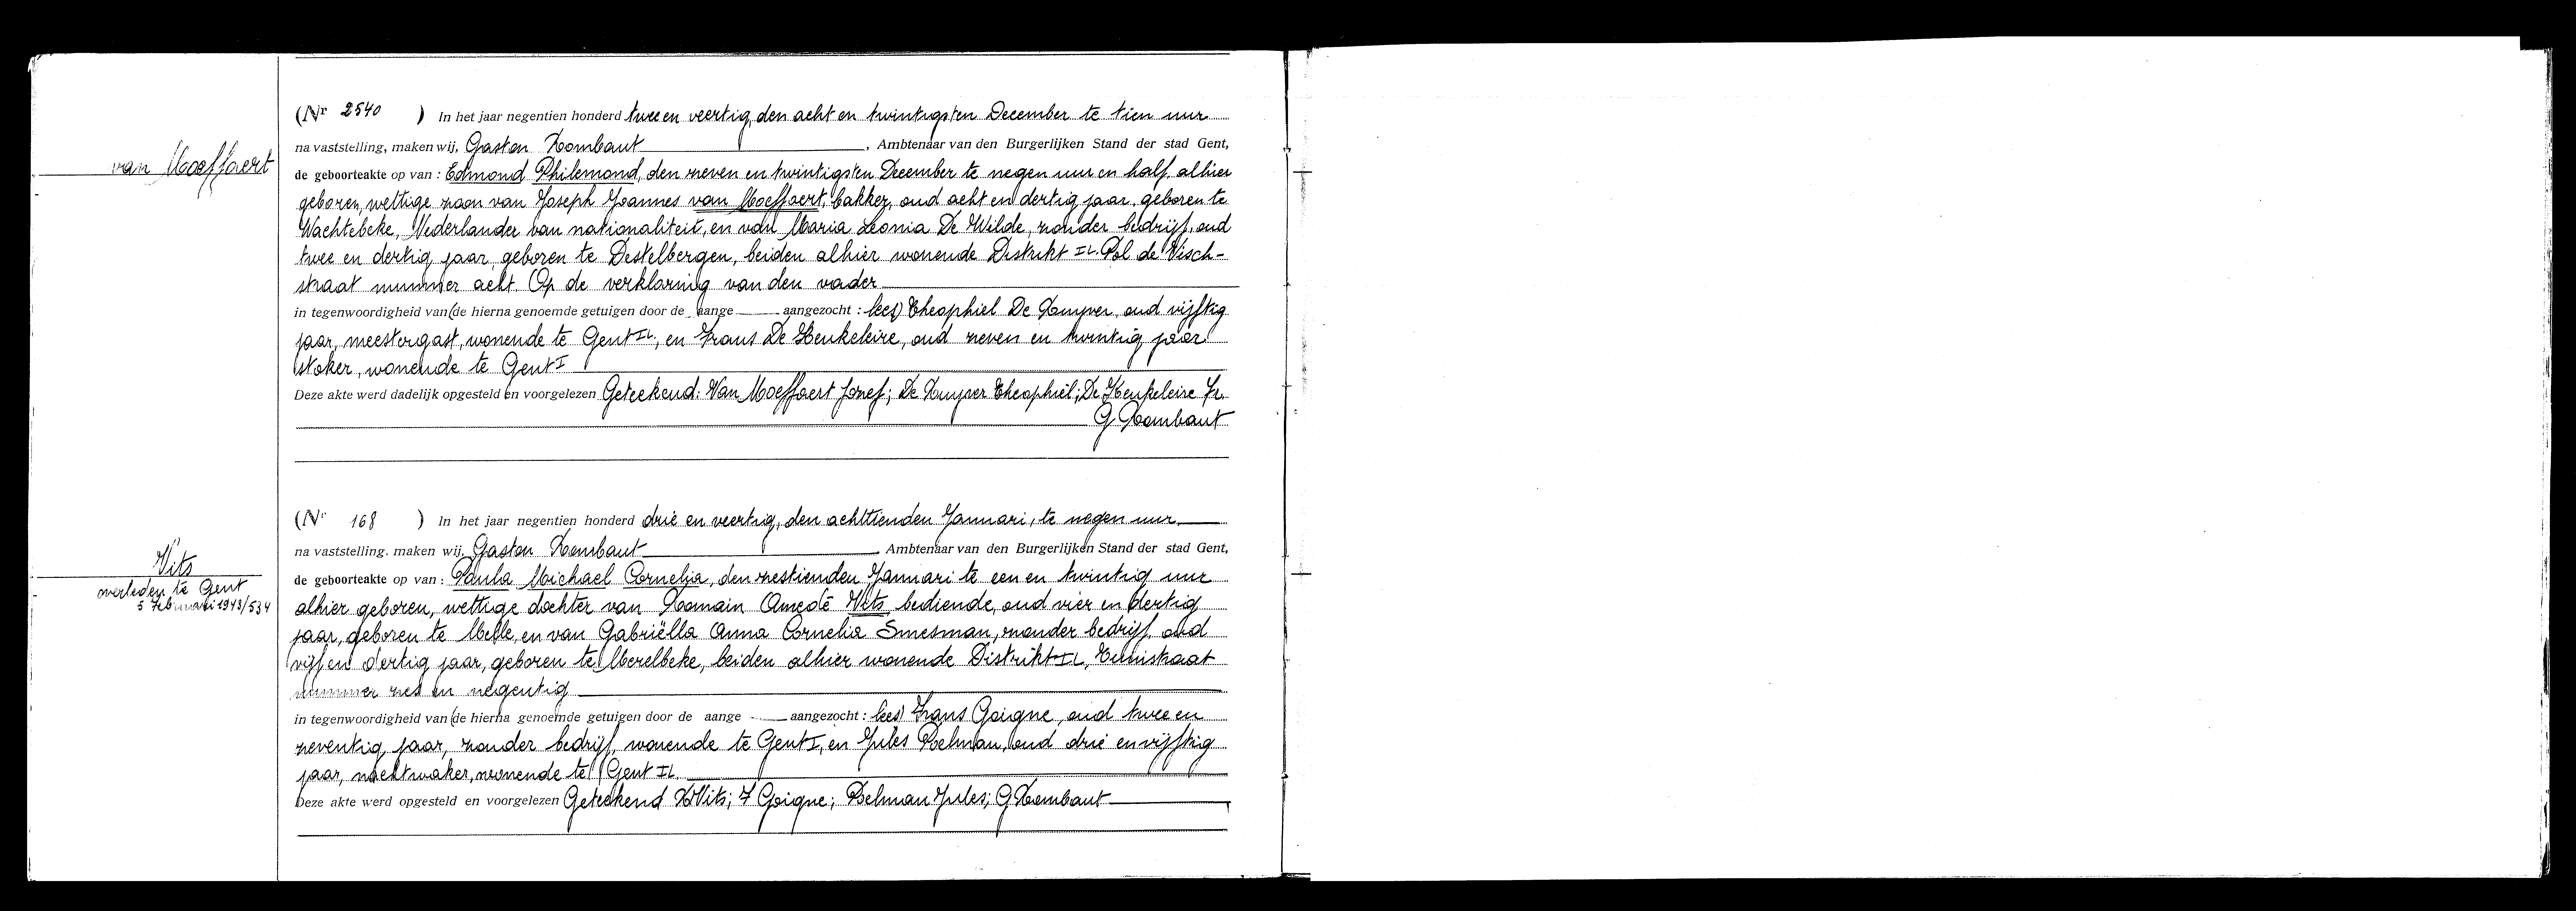 (Nr 2540 ) In het jaar negentien honderd twee en veertig, den acht en twintigsten December te tien uur
na vaststelling, maken wij, Gaston Rombaut, Ambtenaar van den Burgerlijken Stand der stad Gent,
van Moeffaert
de geboorteakte op van : Edmond Philemond, den zeven en twintigsten December te negen uur en half, alhier
geboren, wettige zoon van Joseph Joannes van Moeffaert, bakker, oud acht en dertig jaar, geboren te
Wachtebeke, Nederlander van nationaliteit, en van Maria Leonia De Wilde, zonder bedrijf, oud
twee en dertig jaar, geboren te Destelbergen, beiden alhier wonende Distrikt II, Pol de Visch-
straat nummer acht. Op de verklaring van den vader
in tegenwoordigheid van (de hierna genoemde getuigen door de aange aangezocht : lees) Theophiel De Kuyver, oud vijftig
jaar, meestergast, wonende te Gent II, en Frans De Keukeleire, oud zeven en twintig jaar
stoker, wonende te Gent I
Deze akte werd dadelijk opgesteld en voorgelezen Geteekend: Van Moeffaert Jozef; De Kuyver Theophiel; De Keukeleire Fr.
G Rombaut
(Nr 168 ) In het jaar negentien honderd drie en veertig, den achttienden Januari, te negen uur
na vaststelling, maken wij, Gaston Rombaut, Ambtenaar van den Burgerlijken Stand der stad Gent,
Vits
overleden te Gent
5 Februari 1943/534
de geboorteakte op van : Paula Michael Cornelia, den zestienden Januari te een en twintig uur
alhier geboren, wettige dochter van Romain Amedé Vits, bediende, oud vier en dertig
jaar, geboren te Melle, en van Gabriëlla Anna Cornelia Smesman, zonder bedrijf, oud
vijf en dertig jaar, geboren te Merelbeke, beiden alhier wonende Distrikt II, Tuinstraat
nummer zes en negentig
in tegenwoordigheid van (de hierna genoemde getuigen door de aange aangezocht : lees) Frans Goigne, oud twee en
zeventig jaar, zonder bedrijf, wonende te Gent I, en Jules Poelman, oud drie en vijftig
jaar, nachtwaker, wonende te Gent II.
Deze akte werd opgesteld en voorgelezen Geteekend R Vits; F Goigne; Poelman Jules; G Rombaut